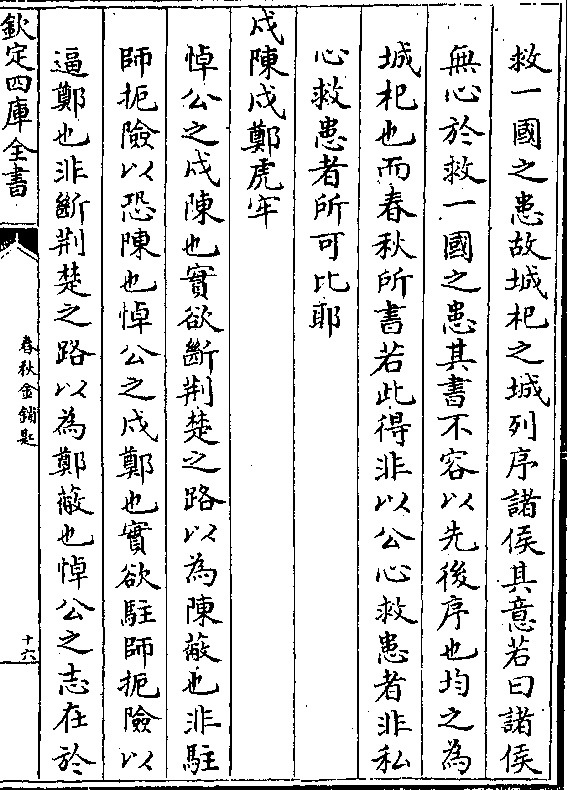 救一國之患故城杞之城列序諸侯其意若曰諸侯
無心於救一國之患其書不容以先後序也均之為
城杞也而春秋所書若此得非以公心救患者非私
心救患者所可比耶
戍陳戍鄭虎牢
悼公之戍陳也實欲斷荆楚之路以為陳蔽也非駐
師扼險以恐陳也悼公之戍鄭也實欲駐師扼險以
逼鄭也非斷荆楚之路以為鄭蔽也悼公之志在於
欽定四庫全書
春秋金鎖匙
十六